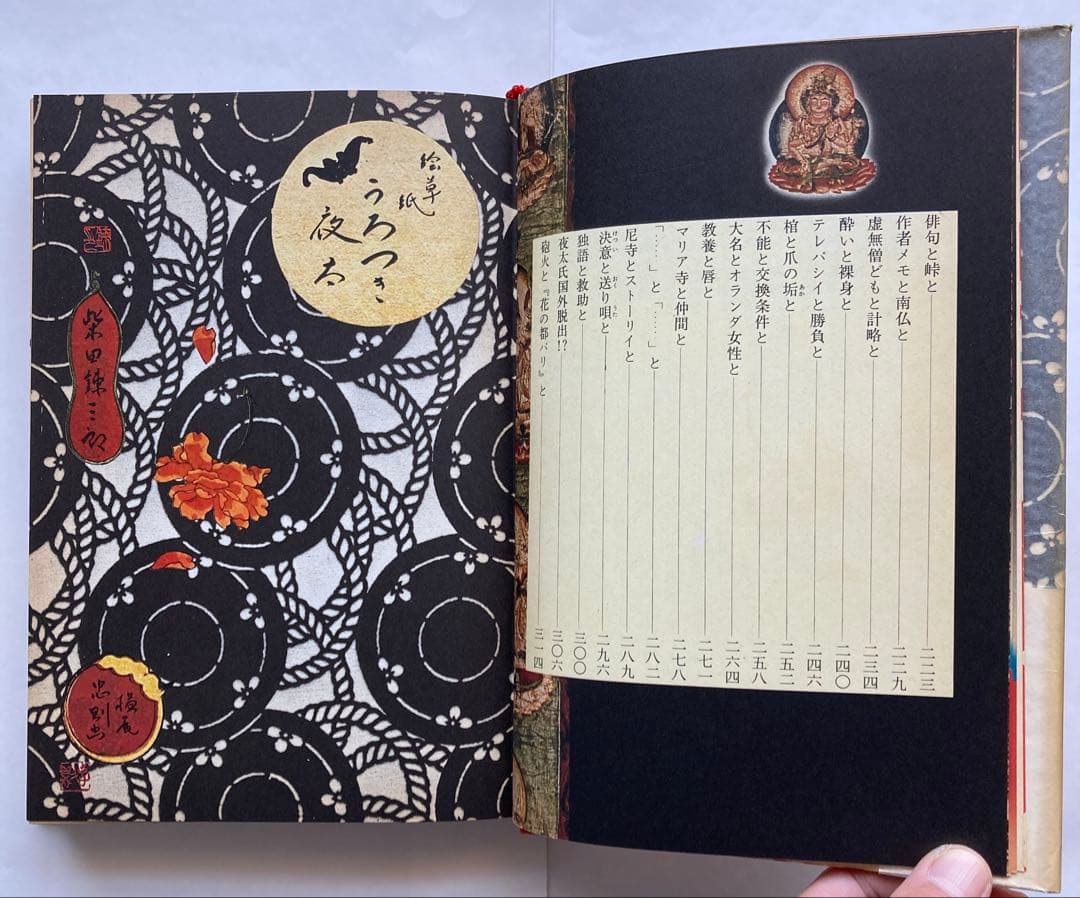 俳句と峠と 二二三
作者メモと南仏と 二二九
虚無僧どもと計略と 二三四
酔いと裸身と 二四〇
テレパシイと勝負と 二四六
棺と爪の垢と 二五二
不能と交換条件と 二五八
大名とオランダ女性と 二六四
教養と唇と 二七一
マリア寺と仲間と 二七八
「‥‥」と「‥‥」と 二八二
尼寺とストーリイと 二八九
決意と送り唄と 二九六
独語と救助と 三〇〇
夜太氏国外脱出!? 三〇六
砲火と『花の都パリ』と 三一四
絵草紙
うろつき
夜太
柴田錬三郎
横尾
忠則画